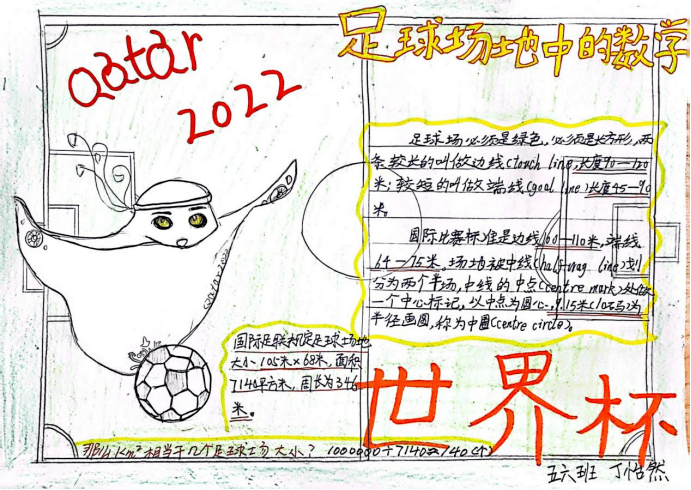 Qatar
2022
足球场地中的数学
足球场必须是绿色,必须是长方形,两
条较长的叫做边线(touch line)长度90—120
米;较短的叫做端线(goal line)长度45—90
米。
国际比赛标准是边线100—110米,端线
64—75米,场地被中线(halfway line)划
分为两个半场,中线的中点(centre mark)处做
一个中心标记,以中点为圆心,9.15米(10码)为
半径画圆,称为中圈(centre circle)。
国际足联规定足球场地
大小105米×68米,面积
7140平方米,周长为346
米。
世界杯
那么1km²相当于几个足球场大小? 1000000÷7140≈140(个)
五六班 丁怡然